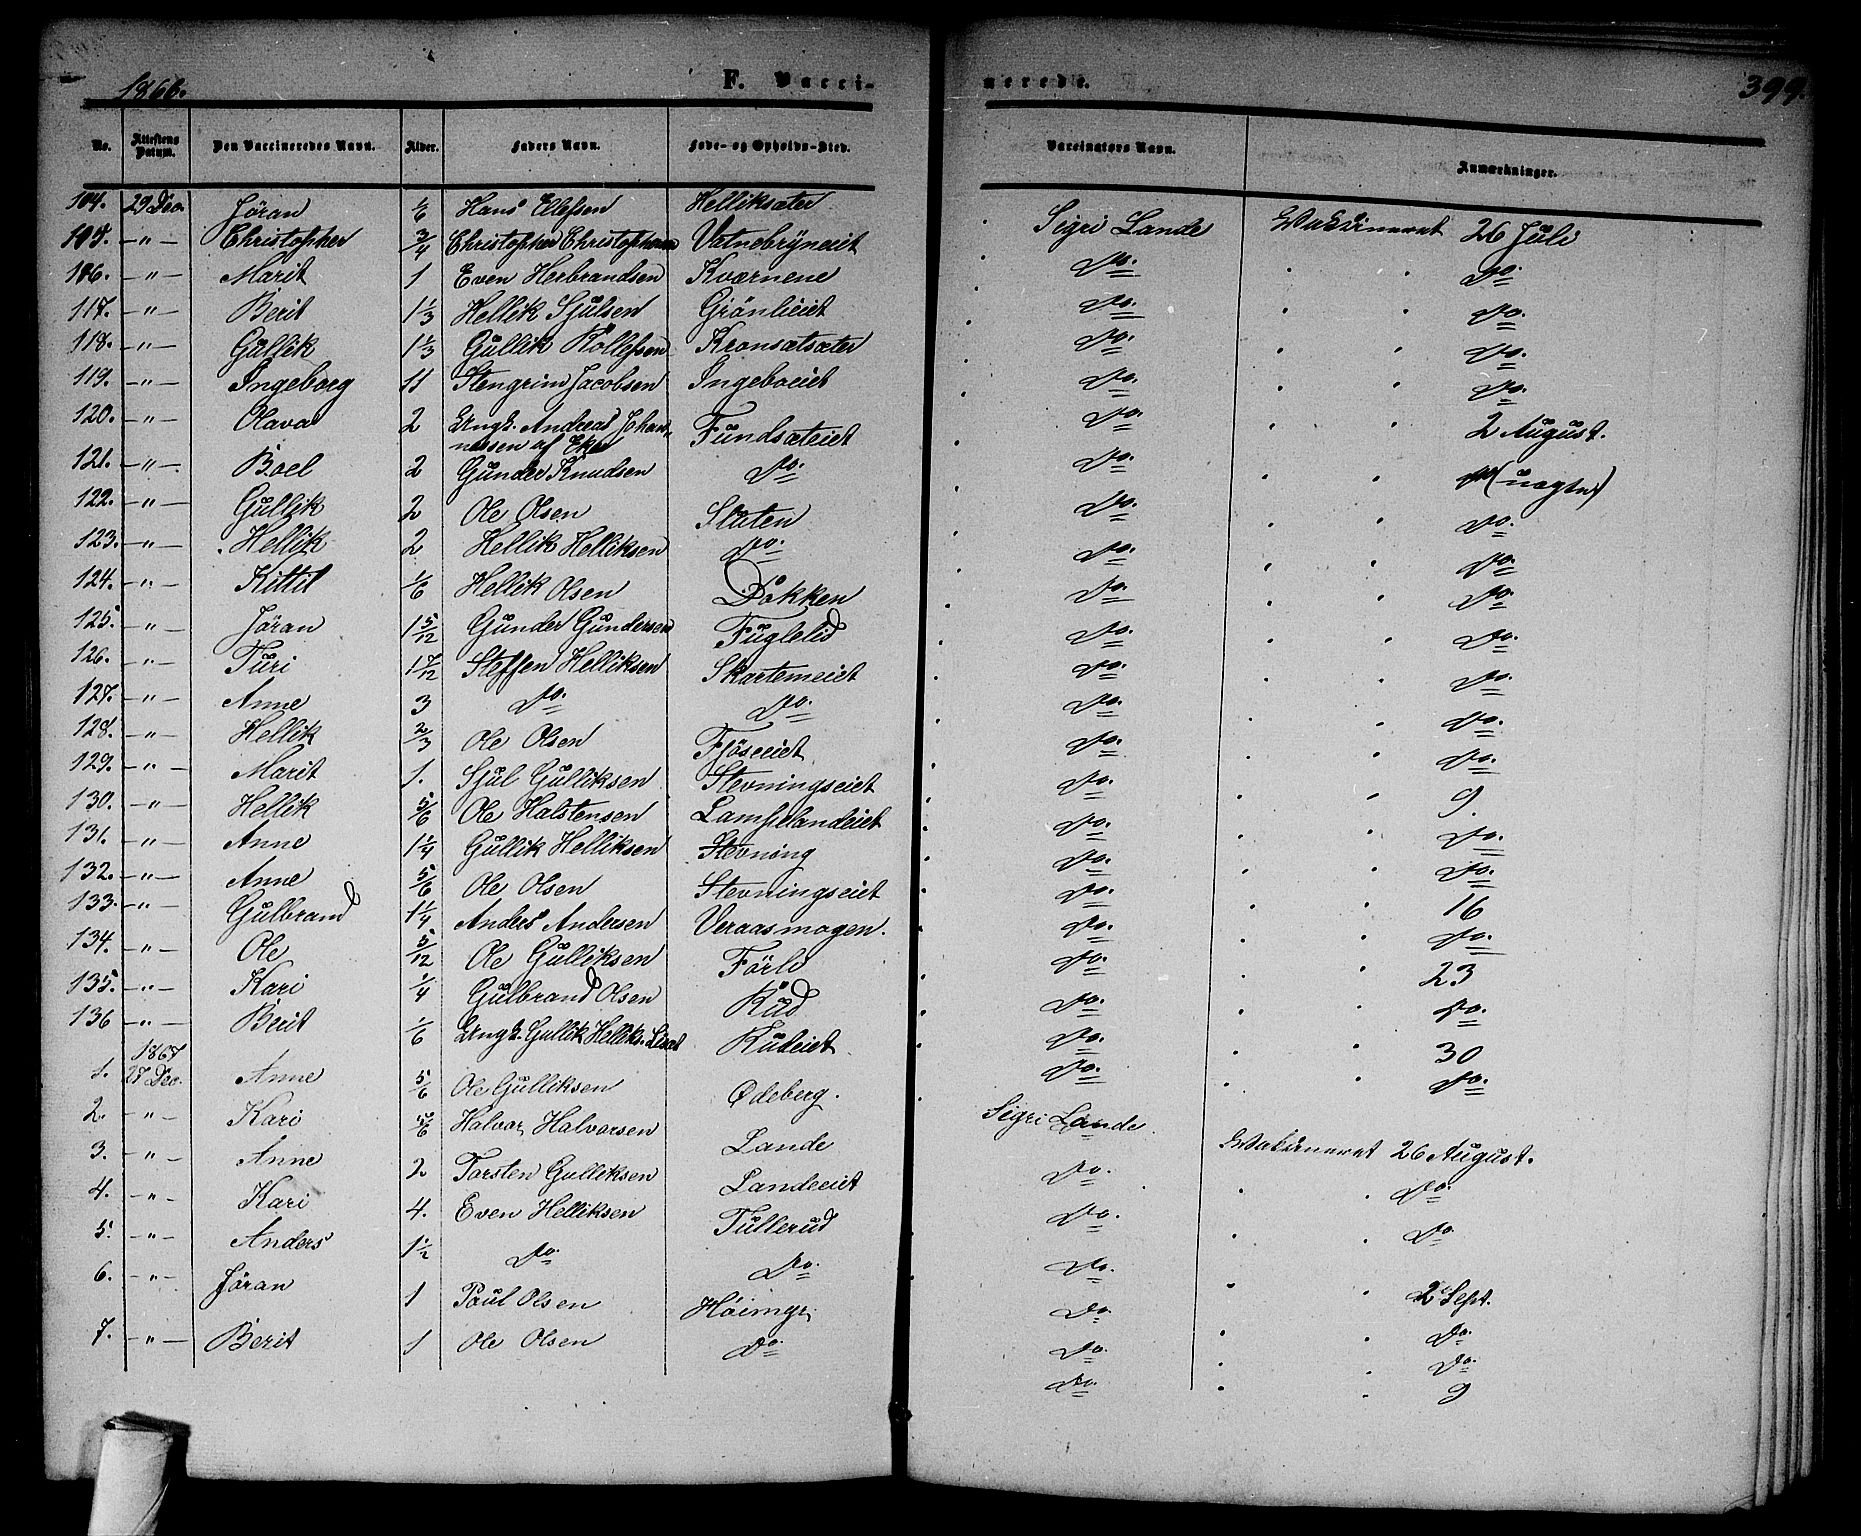 1866.
F. Vacci-
nerede.
399.
No. Attestens Datum. Den Vaccineredes Navn. Alder. Faders Navn. Føde- og Opholds-Sted. Vaccinators Navn. Anmærkninger.
104. 29 Dec. Jöran 1/6 Hans Ellefsen Helliksæter Sigri Lande Vakcineret 26 Juli
105. -"- Christopher 3/4 Christopher Christophersen Vatnebrÿneiet Do. " " Do.
116. -"- Marit 1 Even Herbrandsen Kværnene Do. " " Do.
117. -"- Berit 1 1/3 Hellik Sjulsen Grönlieiet Do. " " Do.
118. -"- Gullik 1 1/3 Gullik Rollefsen Kronsætsæter Do. " " Do.
119. -"- Ingeborg 11 Stengrim Jacobsen Ingeboeiet Do. " " 2 August.
120. -"- Olava 2 Ungk. Andreas Johan-
nessen af Eker Fundsæteiet Do. " " (uægte)
121. -"- Boel 2 Gunder Knudsen Do. Do. " " Do.
122. -"- Gullik 2 Ole Olsen Sluten Do. " " Do.
123. -"- Hellik 2 Hellik Helliksen Do. Do. " " Do.
124. -"- Kittil 1/6 Hellik Olsen Dokken Do. " " Do.
125. " - Jöran 1 5/12 Gunder Gundersen Fuglelid Do. " " Do.
126. " - Turi 1 7/12 Steffen Helliksen Skartemeiet Do. " " Do.
127. -"- Anne 3 Do. Do. Do. " " Do.
128. -"- Hellik 2/3 Ole Olsen Fjöseeiet Do. " " 9.
129. -"- Marit 1. Sjul Gulliksen Stevningseiet Do. " " Do.
130. -"- Hellik 5/6 Ole Halstensen Lampelandeiet Do. " " Do.
131. -"- Anne 1 1/4 Gullik Helliksen Stevning Do. " " 16
132. -"- Anne 5/6 Ole Olsen Stevningseiet Do. " " Do.
133. -"- Gulbrand 1 1/4 Anders Andersen Veraasmogen. Do. " " 23
134. -"- Ole 5/12 Ole Gulliksen Förli Do. " " Do.
135. -"- Kari 1/4 Gulbrand Olsen Rud Do. " " 30
136 -"- Berit 1/6 Ungk. Gullik Helliks. Rudeiet Do. " " Do.
1867
1. 27 Dec. Anne 5/6 Ole Gulliksen Ødeberg. Sigri Lande Vakcineret 26 August.
2. " - Kari 5/6 Halvor Halvorsen Lande Do. " " Do.
3. -"- Anne 2 Torsten Gulliksen Landeeiet Do. " " Do
4. -"- Kari 4. Even Helliksen Tullerud Do. " " 2 Sept.
5. -"- Anders 1 1/2 Do. Do. Do " " Do.
6. -"- Jöran 1 Paul Olsen Do. " " Do.
7. -"- Berit 1 Ole Olsen Do. Do. " " 9